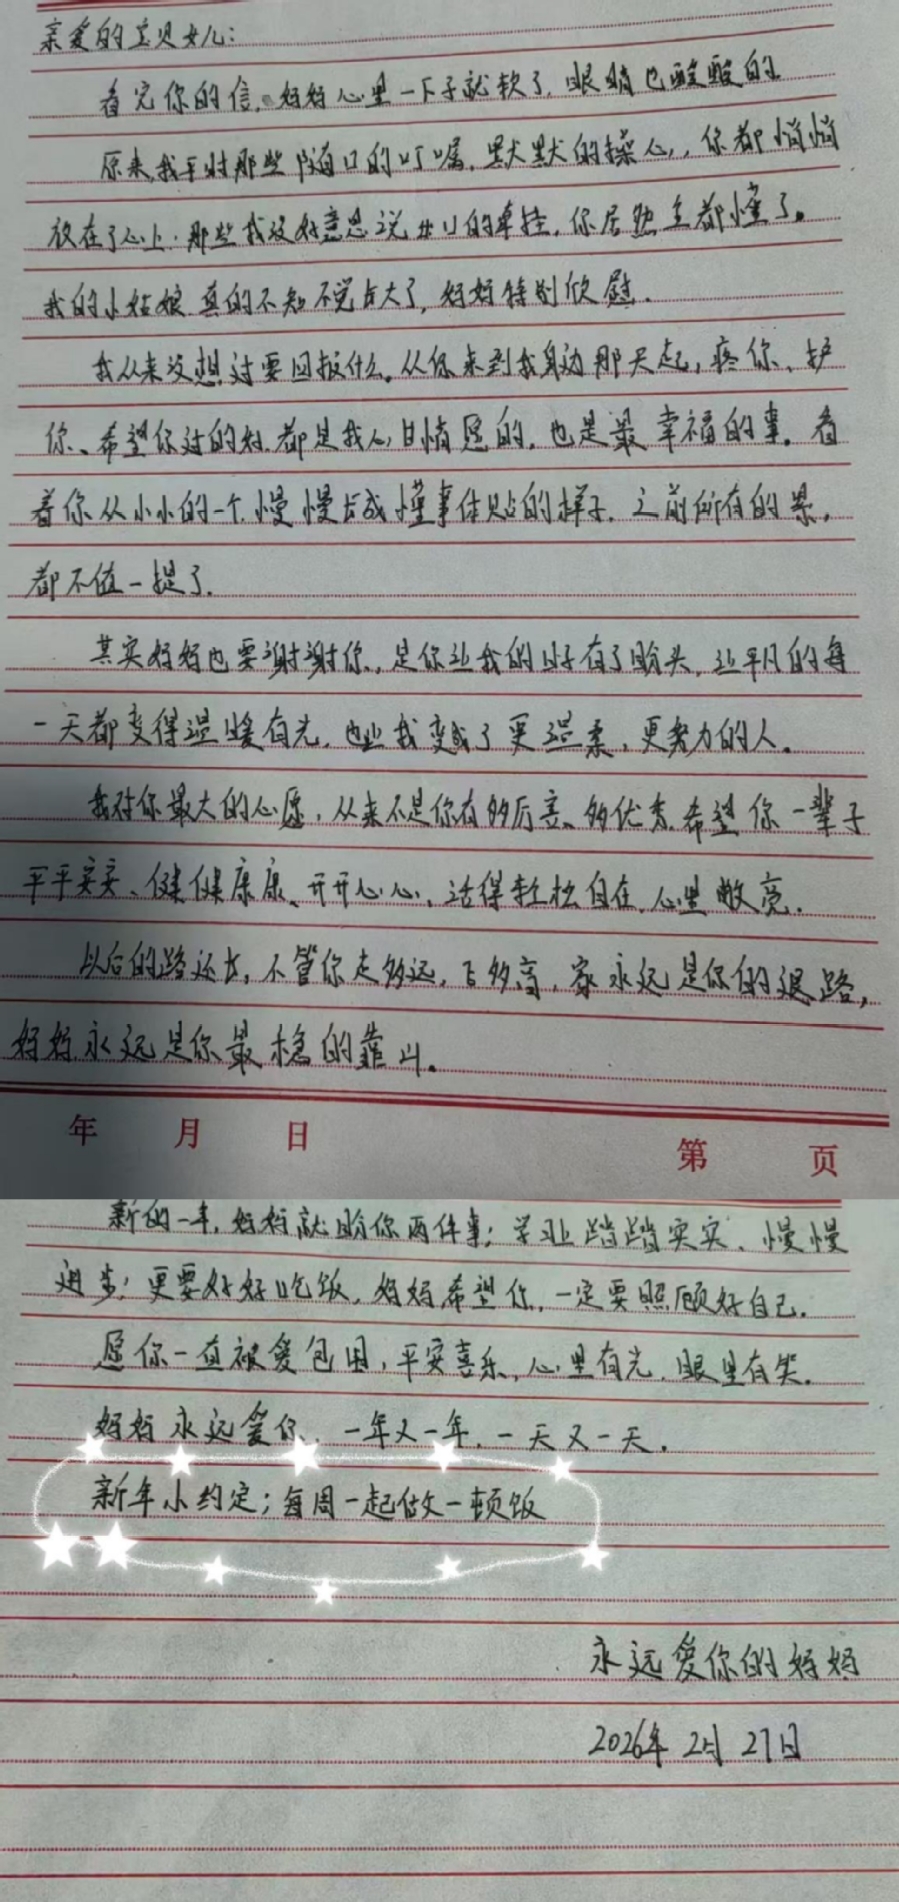 亲爱的宝贝女儿:
看完你的信,妈妈心里一下子就软了,眼睛也酸酸的
原来,我平时那些随口的叮嘱,默默的操心,你都悄悄
放在了心上,那些我没好意思说出口的牵挂,你居然全都懂了。
我的小姑娘真的不知不觉长大了,妈妈特别欣慰.
我从来没想过要回报什么,从你来到我身边那天起,疼你、护
你、希望你过的好,都是我心甘情愿的,也是最幸福的事。看
着你从小小的一个,慢慢长成懂事体贴的样子,之前所有的累,
都不值一提了.
其实妈妈也要谢谢你,是你让我的日子有了盼头,让平凡的每
一天都变得温暖有光,也让我变成了更温柔,更努力的人。
我对你最大的心愿,从来不是你有多厉害、多优秀,希望你一辈子
平平安安、健健康康、开开心心,活得轻松自在,心里敞亮.
以后的路还长,不管你走多远,飞多高,家永远是你的退路,
妈妈永远是你最稳的靠山。
年 月 日 第 页
新的一年,妈妈就盼你两件事;学业踏踏实实、慢慢
进步;更要好好吃饭,妈妈希望你,一定要照顾好自己.
愿你一直被爱包围,平安喜乐,心里有光,眼里有笑.
妈妈永远爱你,一年又一年,一天又一天.
新年小约定;每周一起做一顿饭
永远爱你的妈妈
2026年2月27日